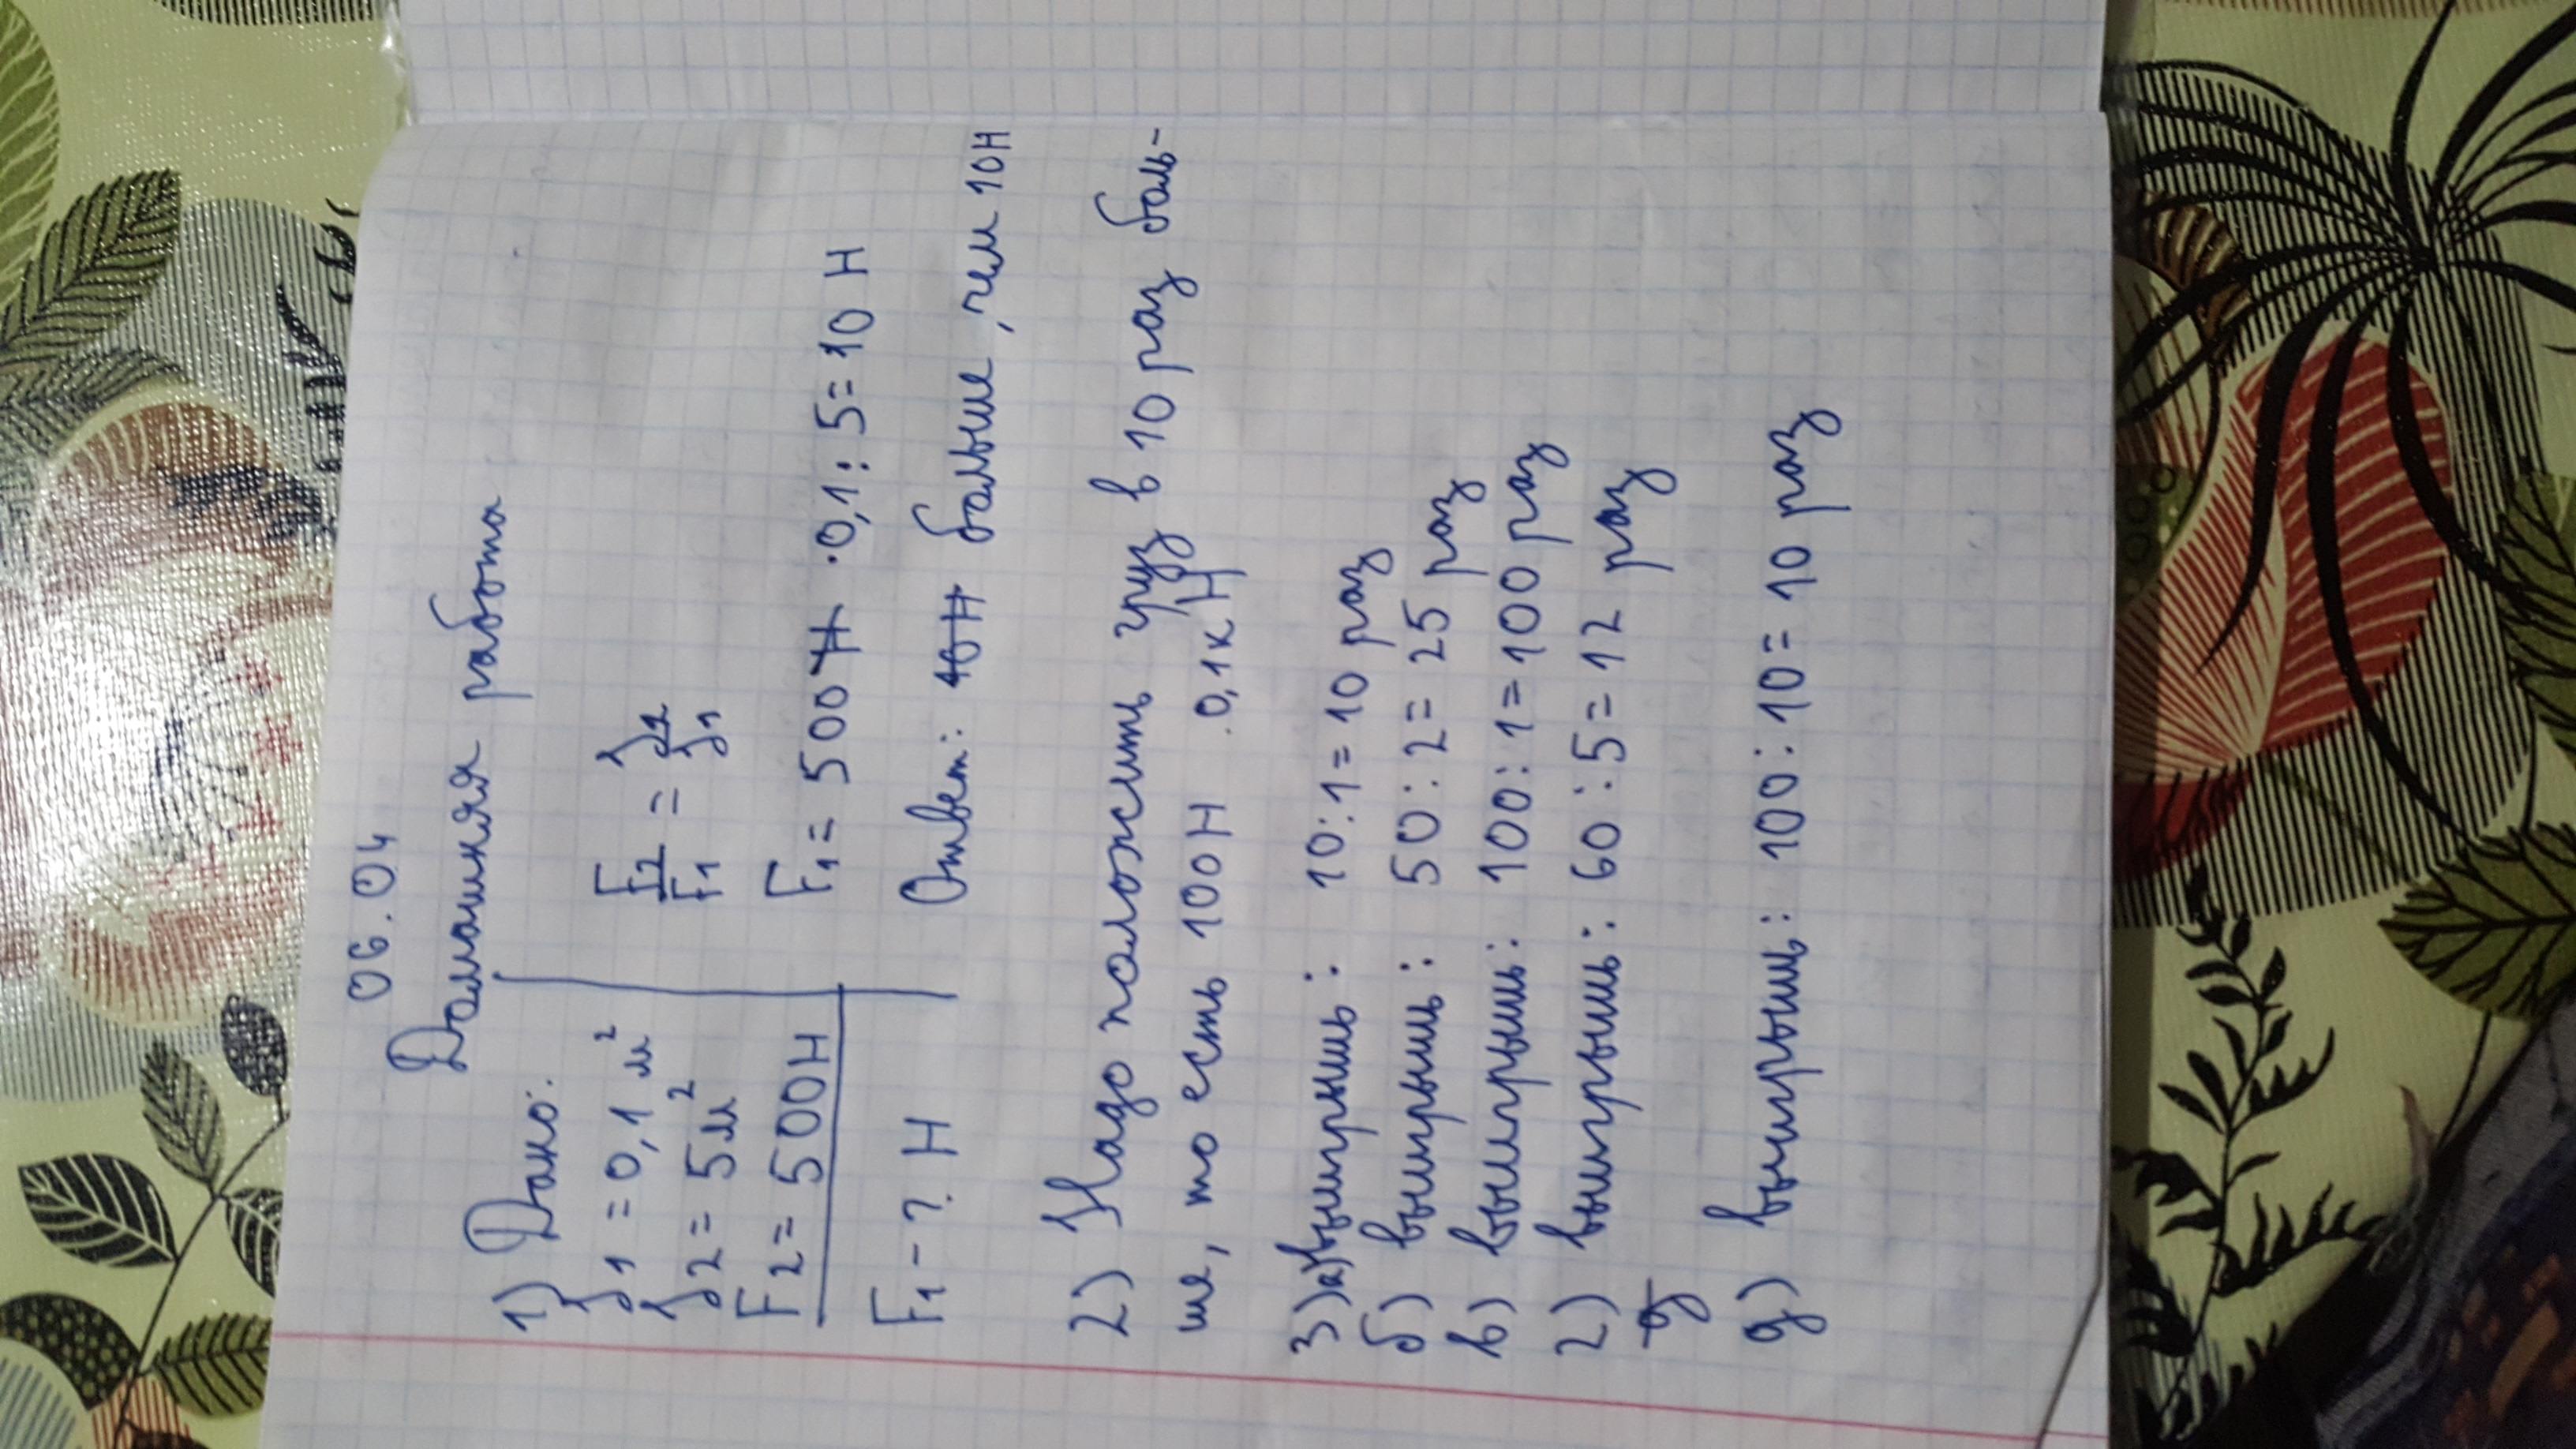 06.04
Домашняя работа
1) Дано:
S1 = 0,1 м²
S2 = 5м²
F2 = 500Н
F1 - ? Н
F2/F1 = S2/S1
F1 = 500 Н · 0,1 : 5 = 10 Н
Ответ: 10Н больше, чем 10Н
2) Надо положить груз в 10 раз боль-
ше, то есть 100Н . 0,1кН
3) а) выигрыш: 10:1=10 раз
б) выигрыш: 50:2=25 раз
в) выигрыш: 100:1=100 раз
г) выигрыш: 60:5=12 раз
д
д) выигрыш: 100:10=10 раз